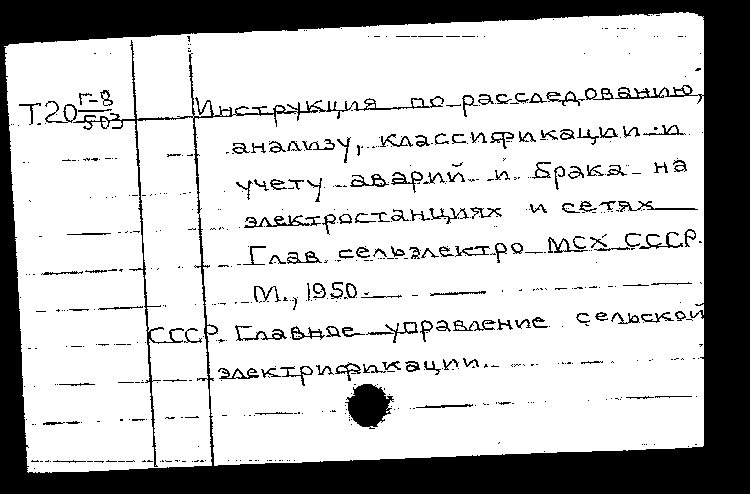 Т.20 Г-8/503 Инструкция по расследованию,
анализу, классификации и
учету аварий и брака на
электростанциях и сетях
Глав сельэлектро МСХ СССР.
М., 1950.
СССР. Главное управление сельской
электрификации.